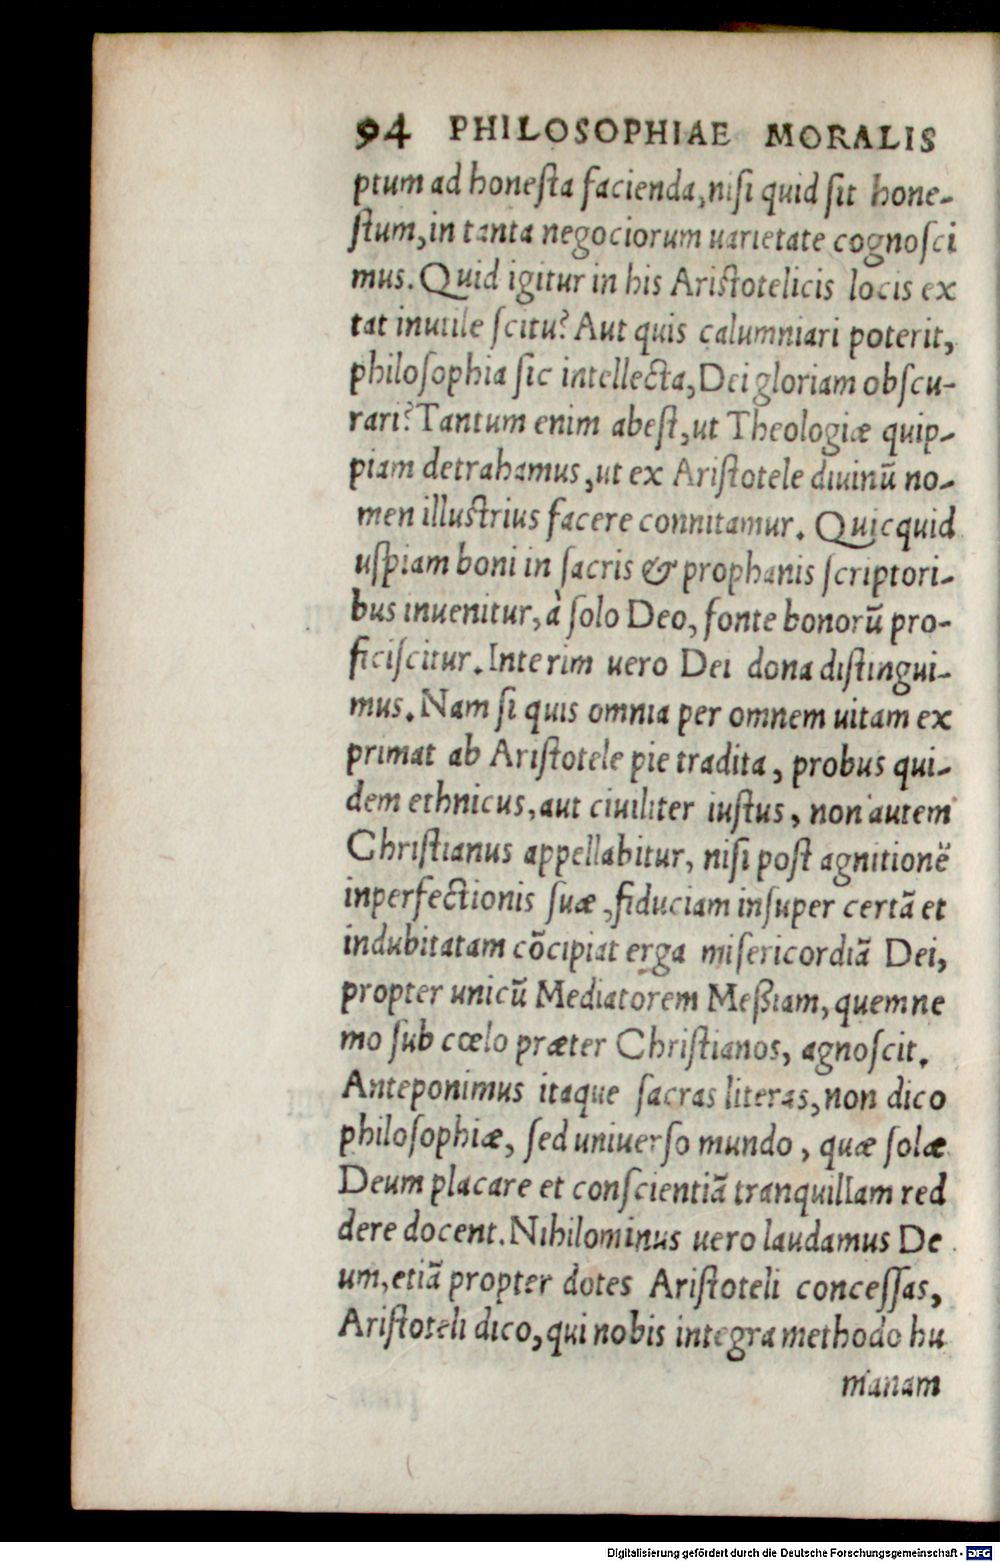 94 PHILOSOPHIAE MORALIS
ptum ad honeſta facienda, niſi quid ſit hone-
ſtum, in tanta negociorum uarietate cognoſci
mus. Quid igitur in his Ariſtotelicis locis ex
tat inutile ſcitu? Aut quis calumniari poterit,
philoſophia ſic intellecta, Dei gloriam obſcu-
rari? Tantum enim abeſt, ut Theologiæ quip-
piam detrahamus, ut ex Ariſtotele diuinũ no-
men illuſtrius facere connitamur. Quicquid
uſpiam boni in ſacris & prophanis ſcriptori-
bus inuenitur, à ſolo Deo, fonte bonorũ pro-
ficiſcitur. Interim uero Dei dona diſtingui-
mus. Nam ſi quis omnia per omnem uitam ex
primat ab Ariſtotele pie tradita, probus qui-
dem ethnicus, aut ciuiliter iuſtus, non autem
Chriſtianus appellabitur, niſi poſt agnitionẽ
inperfectionis ſuæ, fiduciam inſuper certã et
indubitatam cõcipiat erga miſericordiã Dei,
propter unicũ Mediatorem Meßiam, quem ne
mo ſub cœlo præter Chriſtianos, agnoſcit.
Anteponimus itaque ſacras literas, non dico
philoſophiæ, ſed uniuerſo mundo, quæ ſolæ
Deum placare et conſcientiã tranquillam red
dere docent. Nihilominus uero laudamus De
um, etiã propter dotes Ariſtoteli conceſſas,
Ariſtoteli dico, qui nobis integra methodo hu
manam
Digitalisierung gefördert durch die Deutsche Forschungsgemeinschaft - DFG